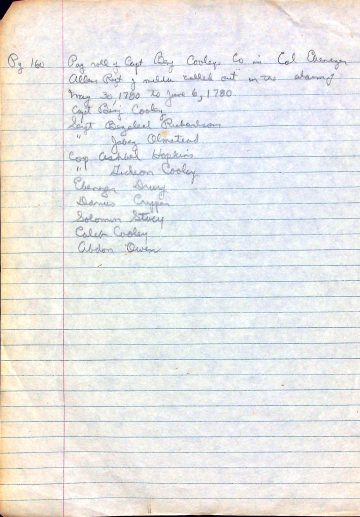 Pg 160 Pay roll of Capt Benj Cooley, Co in Col Ebenezer
Allen Regt of militia called out in two alarms
May 30, 1780 to June 6, 1780
Capt Benj Cooley
Sergt Bezaleel Richardson
" Jabez Olmstead
Corp Ashbel Hopkins
" Gideon Cooley
Ebenezer Drury
Solomon Story
Caleb Cooley
Abdon Owen